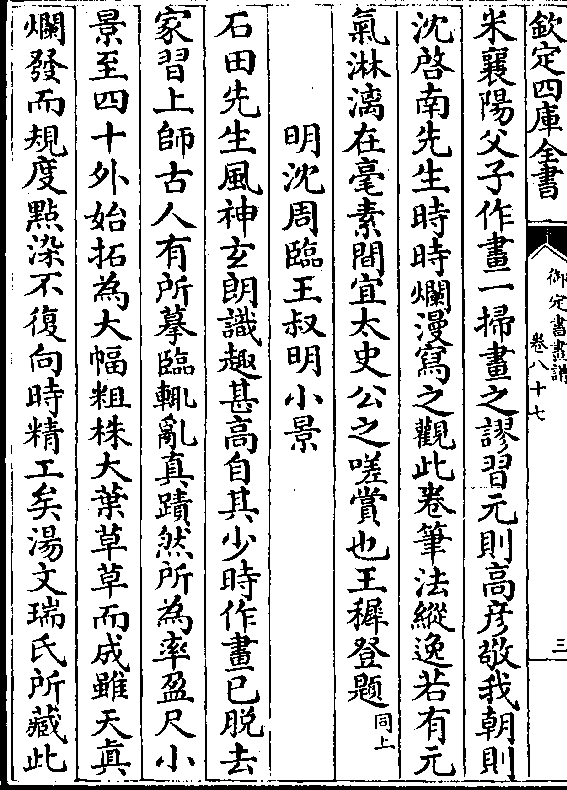 欽定四庫全書
御定書畫譜
卷八十七
三
米襄陽父子作畫一掃畫之謬習元則高彥敬我朝則
沈啓南先生時時爛漫寫之觀此卷筆法縱逸若有元
氣淋漓在毫素間宜太史公之嗟賞也王穉登題同上
明沈周臨王叔明小景
石田先生風神玄朗識趣甚高自其少時作畫已脫去
家習上師古人有所摹臨輒亂真蹟然所為率盈尺小
景至四十外始拓為大幅粗株大葉草草而成雖天真
爛發而規度點染不復向時精工矣湯文瑞氏所藏此